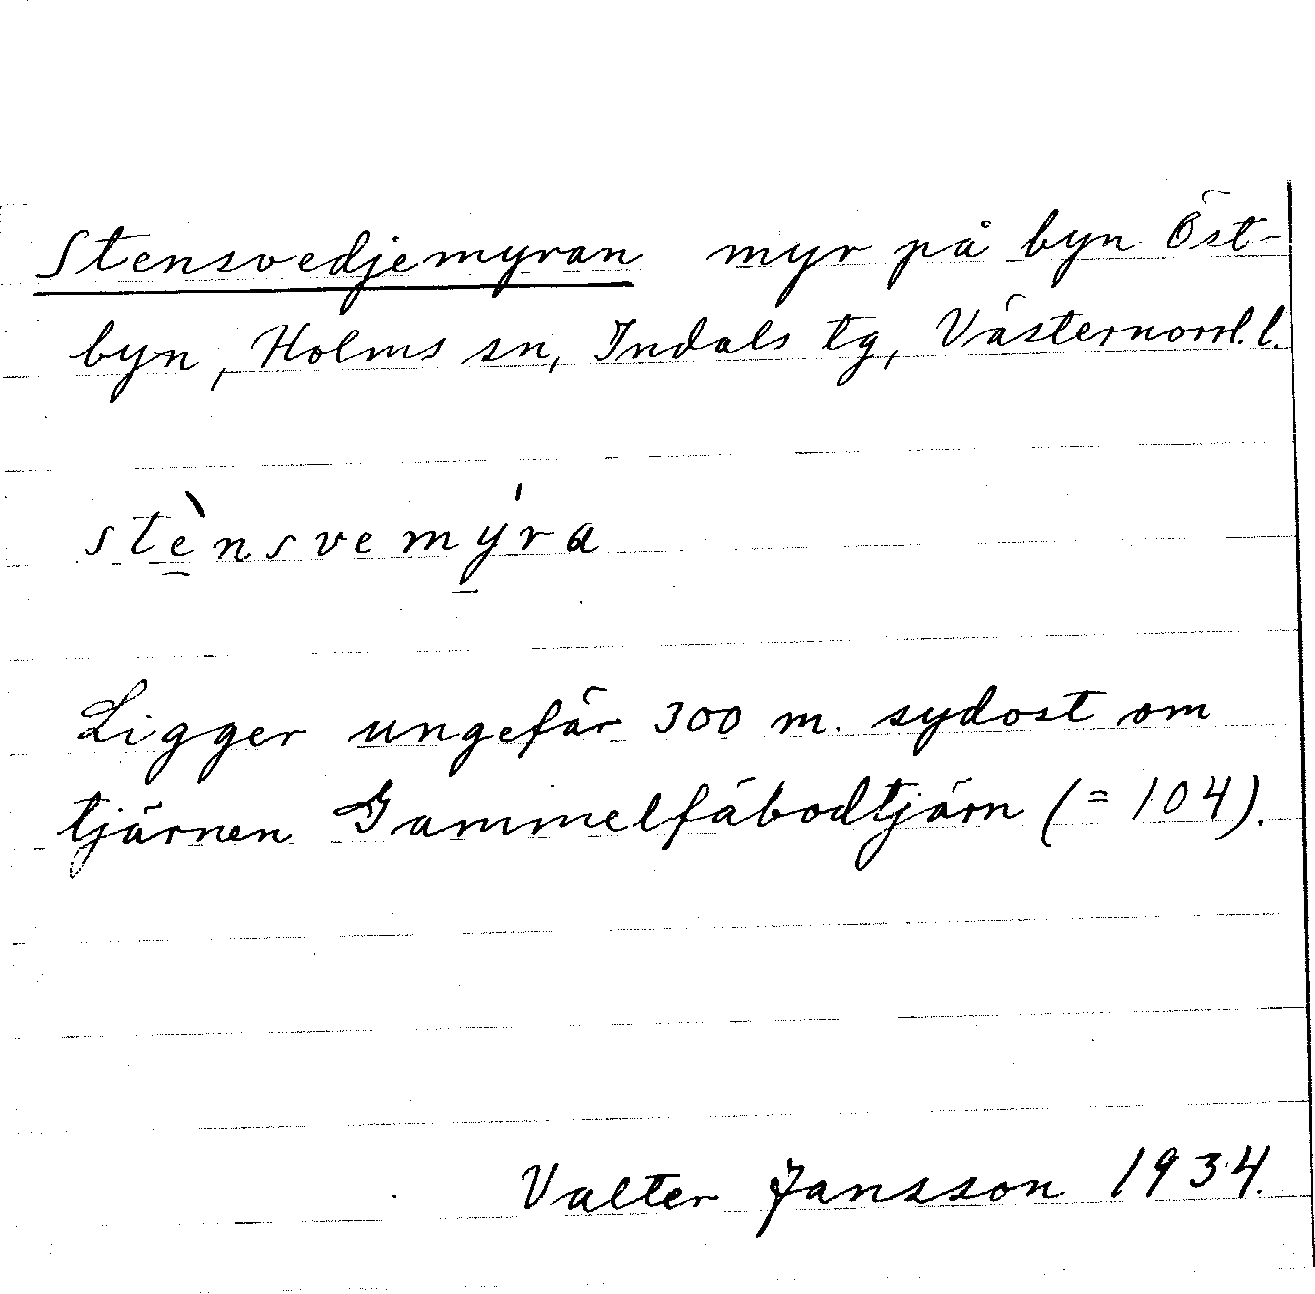 Stensvedjemyran myr på byn Öst-
byn, Holms sn, Indals tg, Västernorrl. l.
stè̱nsvemý̱ra
Ligger ungefär 300 m. sydost om
tjärnen Gammelfäbodtjärn (= 104).
Valter Jansson 1934.